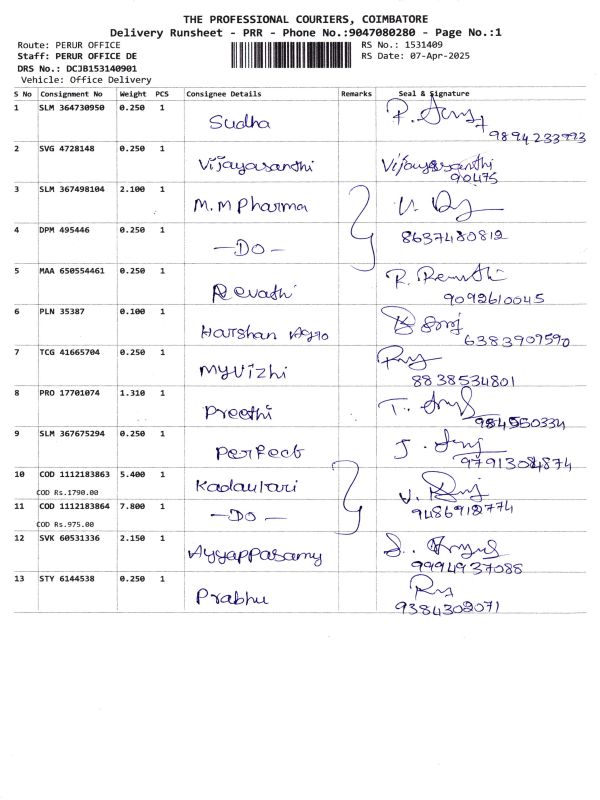 THE PROFESSIONAL COURIERS, COIMBATORE
Delivery Runsheet - PRR - Phone No.:9047080280 - Page No.:1
Route: PERUR OFFICE RS No.: 1531409
Staff: PERUR OFFICE DE RS Date: 07-Apr-2025
DRS No.: DCJB153140901
Vehicle: Office Delivery
S No Consignment No Weight PCS Consignee Details Remarks Seal & Signature
1 SLM 364730950 0.250 1 Sudha
9894233993
2 SVG 4728148 0.250 1 Vijayasanthi Vijayasanthi
90475
3 SLM 367498104 2.100 1 M.M Pharma
4 DPM 495446 0.250 1 -DO- 8637480812
5 MAA 650554461 0.250 1 Revathi R. Revathi
9092610045
6 PLN 35387 0.100 1 Harshan Agro
6383909590
7 TCG 41665704 0.250 1 Myvizhi
8838534801
8 PRO 17701074 1.310 1 Preethi
984550334
9 SLM 367675294 0.250 1 Perfect
9791304874
10 COD 1112183863 5.400 1
COD Rs.1790.00
11 COD 1112183864 7.800 1 -DO- 9486912774
COD Rs.975.00
12 SVK 60531336 2.150 1 Ayyappasamy
9994937088
13 STY 6144538 0.250 1 Prabhu
9384302071